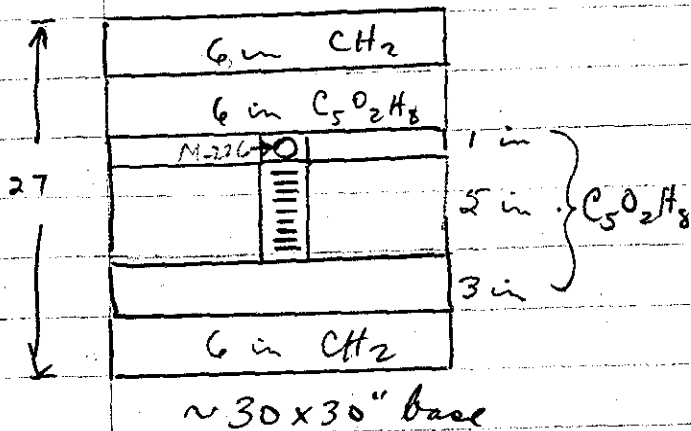 6 in CH₂
6 in C₅O₂H₈
M-226
1 in
27
5 in
C₅O₂H₈
3 in
6 in CH₂
~30x30" base